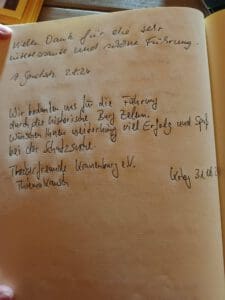 Vielen Dank für die sehr
interessante und schöne Führung.
2.8.24
Wir bedanken uns für die Führung
durch die historische Burg Zelem.
Wünschen Ihnen weiterhin viel Erfolg und Spaß
bei der Schatzsuche.
Theaterfreunde Kranenburg e.V.